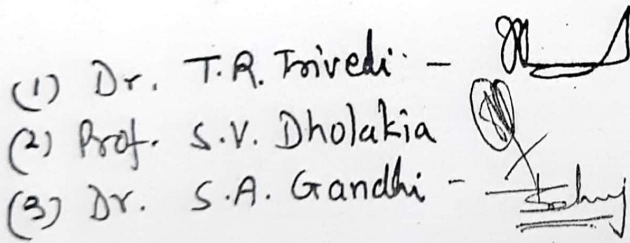 (1) Dr. T.R. Trivedi -
(2) Prof. S.V. Dholakia
(3) Dr. S.A. Gandhi -